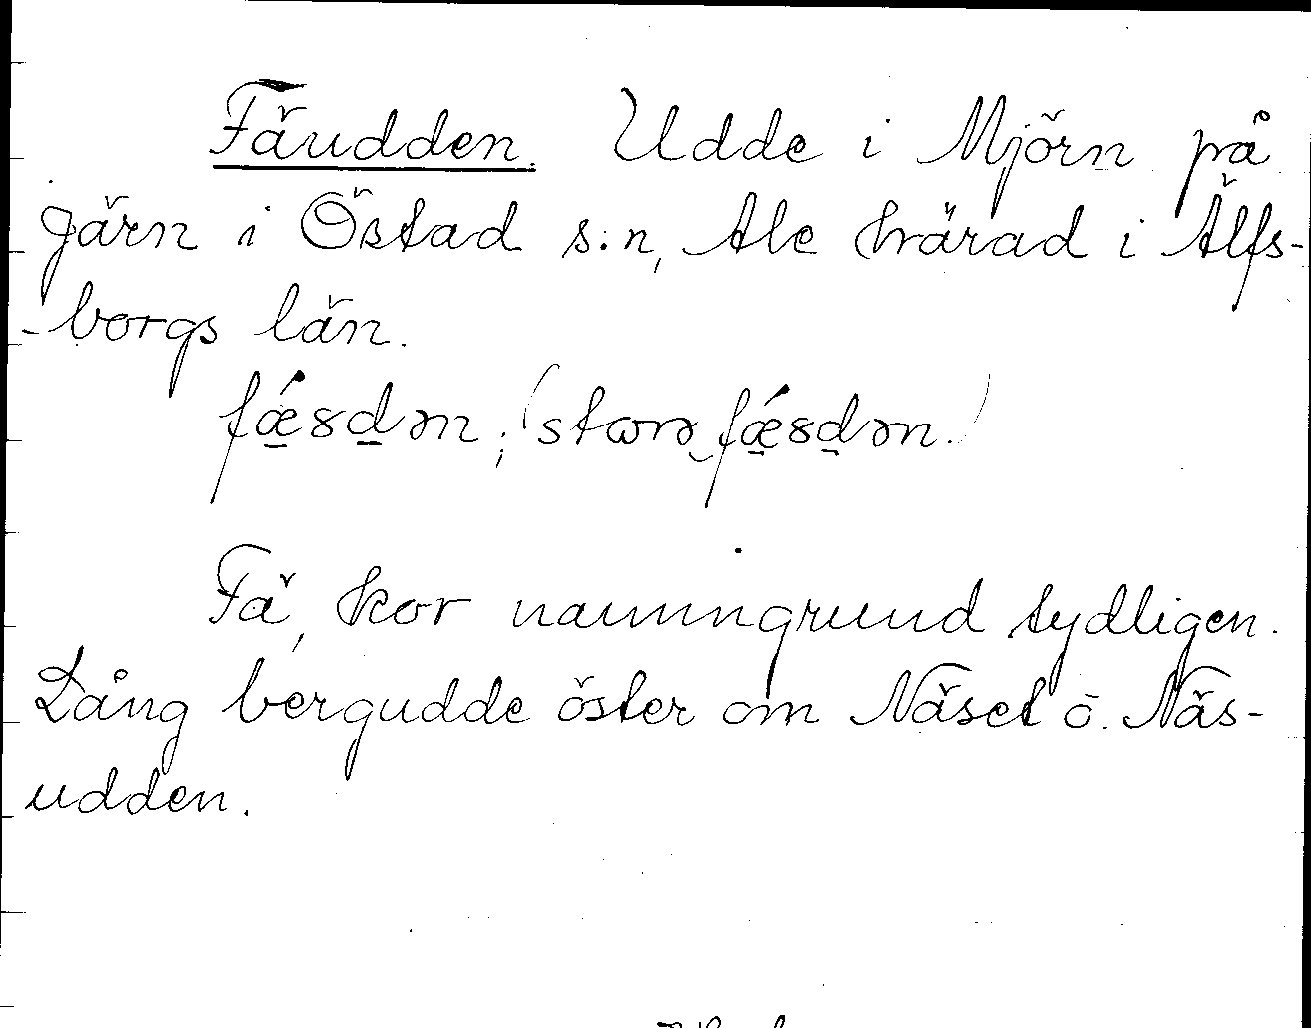 Fäudden. Udde i Mjörn på
gärn i Östad s:n, Ale härad i Älfs-
-borgs län.
fǽ̱ꞩḏən; (stɷrə‿fǽ̱ꞩḏən.)
Fä, kor namngrund tydligen.
Lång bergudde öster om Näset o. Näs-
udden.